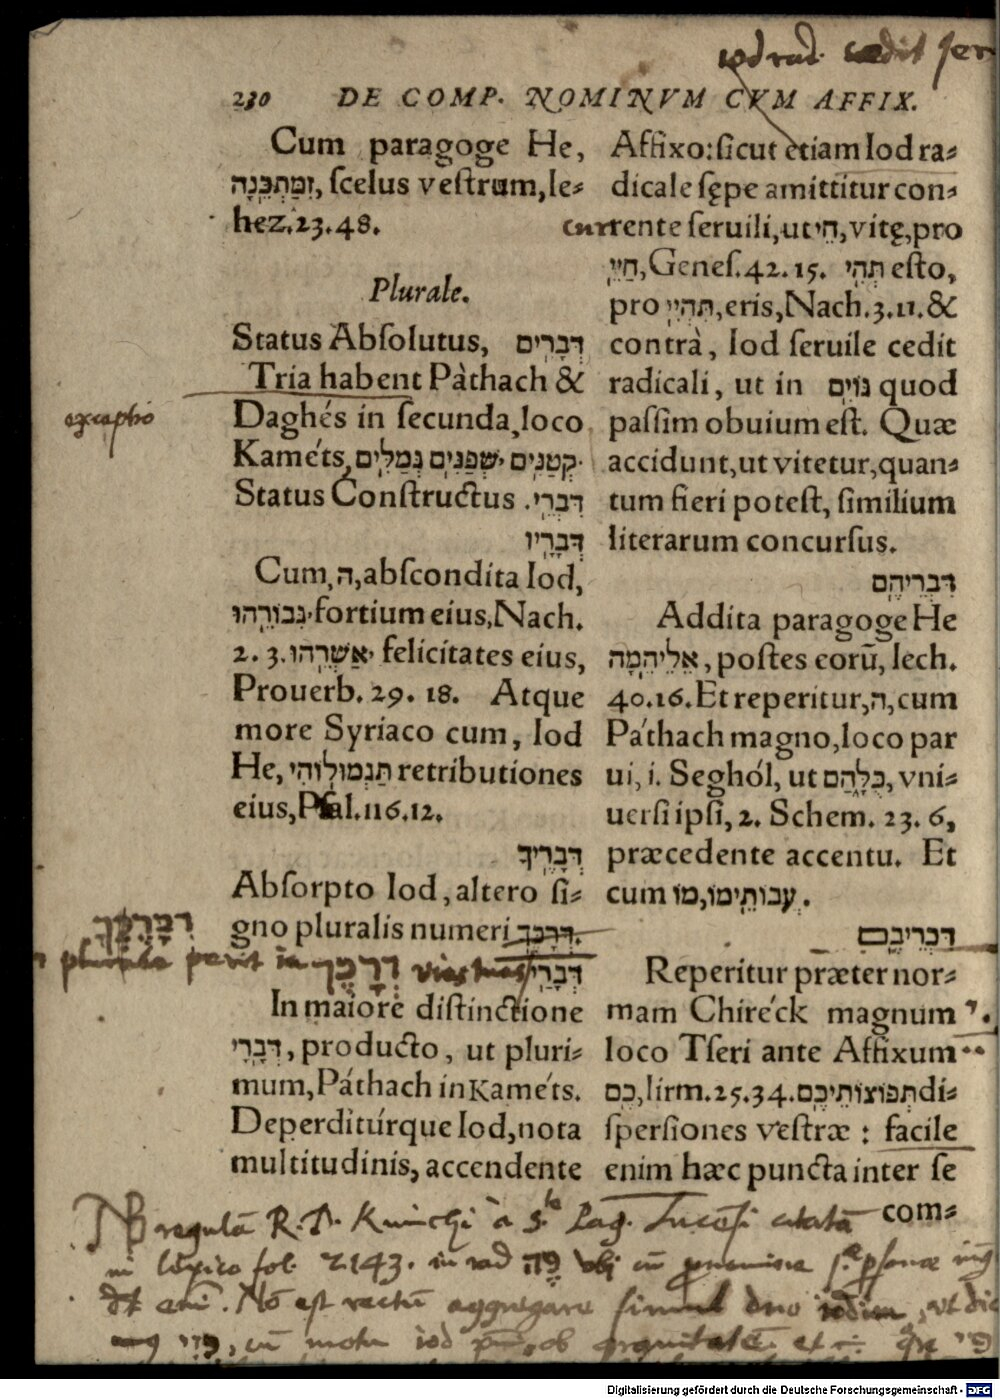 iod rad. cedit ser
230 DE COMP. NOMINVM CVM AFFIX.
Cum paragoge He,
זִמַּתְכֶנָה, ſcelus veſtrum, Ie⸗
hez. 23. 48.
Plurale.
Status Abſolutus, דְּבָרִים
Tria habent Páthach &
Daghés in ſecunda, loco
Kaméts, קְטַנִּים שְׁפַנִּים גְּמַלִּים.
Status Conſtructus דִּבְרֵי.
דְּבָרָיו
Cum, ה, abſcondita Iod,
גִּבּוֹרֵהוּ fortium eius, Nach.
2. 3. אַשְׁרֵהוּ felicitates eius,
Prouerb. 29. 18. Atque
more Syriaco cum, Iod
He, תַּגְמוּלוֹהִי retributiones
eius, Pſal. 116. 12.
דְּבָרֶיךָ
Abſorpto Iod, altero ſi⸗
gno pluralis numeri
דְּבָרַי
In maiore diſtinctione
דְּבָרָי, producto, ut pluri⸗
mum, Páthach in Kaméts.
Deperditúrque Iod, nota
multitudinis, accendente
exceptio
Affixo: ſicut etiam Iod ra⸗
dicale ſępe amittitur con⸗
currente ſeruili, ut חֵי, vitę, pro
חַיֵּי, Geneſ. 42. 15. תְּהִי eſto,
pro תִּהְיִי, eris, Nach. 3. 11. &
contrà, Iod ſeruile cedit
radicali, ut in גּוֹיִם quod
paſſim obuium eſt. Quæ
accidunt, ut vitetur, quan⸗
tum fieri poteſt, ſimilium
literarum concurſus.
דִּבְרֵיהֶם
Addita paragoge He
אֵלֵיהֵמָה, poſtes eorũ, Iech.
40. 16. Et reperitur, ה, cum
Páthach magno, loco par
ui, i. Seghól, ut כֻּלָּהַם, vni⸗
uerſi ipſi, 2. Schem. 23. 6,
præcedente accentu. Et
cum מוֹ, עֲבוֹתֵימוֹ.
דִּבְרֵיכֶם
Reperitur præter nor⸗
mam Chiréck magnum
loco Tſeri ante Affixum
כֶם, Iirm. 25. 34. תְּפוֹצוֹתִיכֶם di⸗
ſperſiones veſtræ : facile
enim hæc puncta inter ſe
com⸗
NB regulã R. D. Kimchi à S. Pag. Lucenſi citatã
fol. 2143. in rad פֶּה ubi
Nõ eſt rectũ aggregare ſimul duo iodim, ut
Digitalisierung gefördert durch die Deutsche Forschungsgemeinschaft - DFG